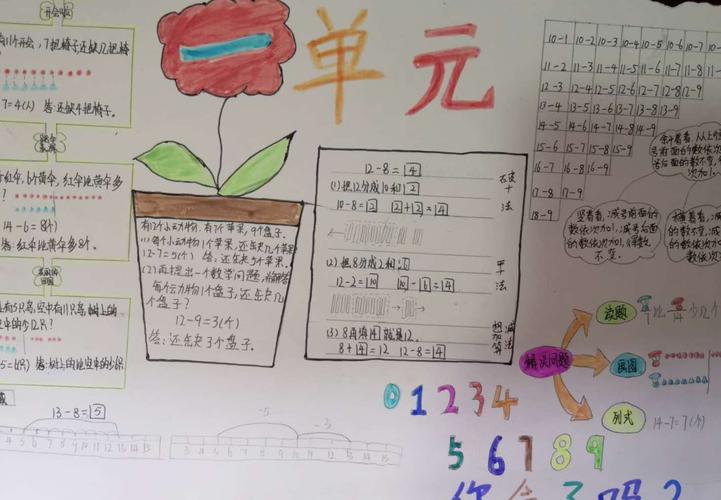 一单元
开会啦
有11个开会,7把椅子,还缺几把椅
7=4(个) 答:还缺4把椅子。
红伞,6个黄伞,红伞比黄伞多
?
14-6=8(个)
答:红伞比黄伞多8个。
有5只鸟,空中有11只鸟,树上的
空中的少12只?
13-8=5
4 5 6 7 8 9 10 11 12 13 14 15
-5
-3
有12个小动物,有7个苹果,9个盘子。
(1)每个小动物1个苹果,还差几个苹果
12-7=5(个) 答:还差5个苹果。
(2)再提出一个数学问题,并解答
每个动物1个盘子,还差几
个盘子?
12-9=3(个)
答:还差3个盘子。
12-8=4
(1)把12分成10和2
10-8=2 2+2=4
破十法
(2)把8分成2和6
12-2=10 10-6=4
平十法
(3)8再填4就是12。
8+4=12 12-8=4
想加算减法
10-1 10-2 10-3 10-4 10-5 10-6 10-7 10-
11-2 11-3 11-4 11-5 11-6 11-7 11-8 11-
12-3 12-4 12-5 12-6 12-7 12-8 12-9
13-4 13-5 13-6 13-7 13-8 13-9
14-5 14-6 14-7 14-8 14-9
15-6 15-7 15-8 15-9
16-7 16-8 16-9
17-8 17-9
18-9
斜着看,从上往
号前面的数依次加
号后面的数不变,
次加1。
竖着看:减号前面的
数依次加1,减号后面
的数依次加1,得数
不变。
横着看,减
的数不变,减
数依次加
解决问题
读题
画图
列式
14-7=7(个)
0 1 2 3 4
5 6 7 8 9
你会了吗?